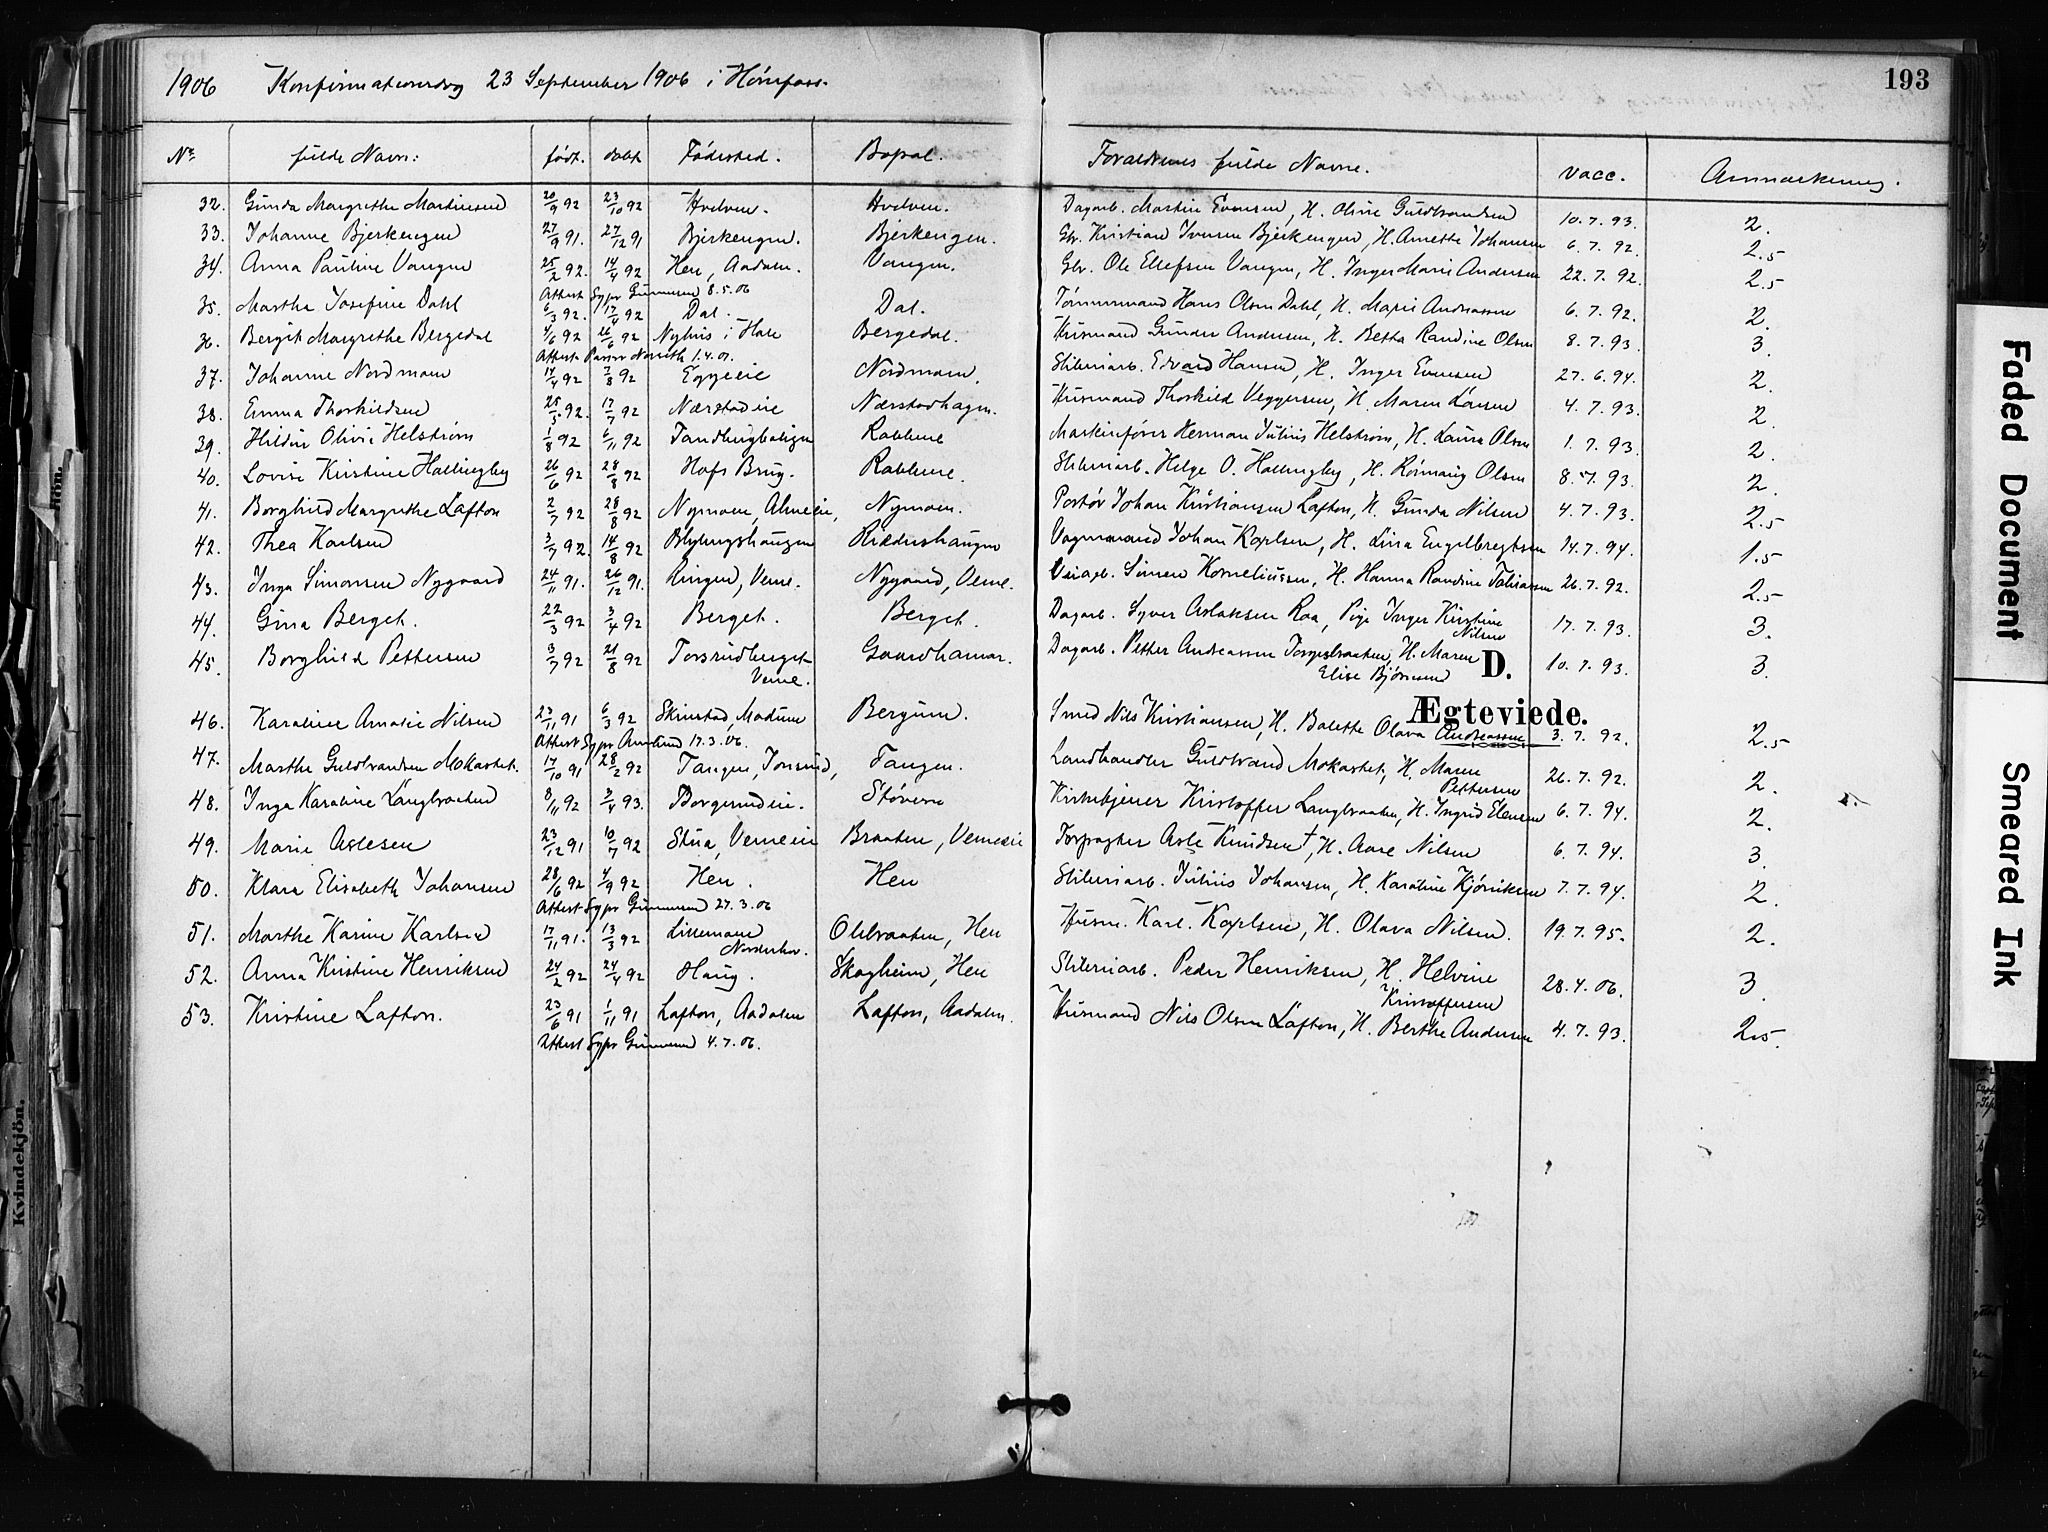 193
1906 Konfirmationsdag 23 September 1906 i Hønefoss.
No. fulde Navn: født. døbt Fødested. Bopæl. Forældrenes fulde Navne. Vacc. Anmærkning.
32. Gunda Margrethe Martinsen 20/9 92 23/10 92 Hvelven. Hvelven. Dagarb. Martin Evensen, H. Oline Guldbrandsen 10.7.93. 2.
33. Johanne Bjerkengen 27/9 91. 27/12 91 Bjerkengen. Bjerkengen. Gbr. Kristian Iversen Bjerkengen, H. Anette Johansen 6.7.92. 2.5
34. Anna Pauline Vangen 25/2 92. 14/4 92 Hen, Aadalen. Vangen. Gbr. Ole Ellefsen Vangen, H. Inger Marie Andersen 22.7.92. 2.5
Attest Sgpr Gunnesen 8.5.06
35. Marthe Josefine Dahl 6/3 92. 17/4 92 Dal. Dal. Tømmermand Hans Olsen Dahl, H. Marie Andreassen 6.7.92. 2.
36. Bergit Margrethe Bergedal 4/6 92 26/6 92 Nyhus i Hole Bergedal. Husmand Gunder Andersen, H. Betha Randine Olsen 8.7.93. 3.
Attest Pastor 1.4.01.
37. Johanne Nordmoen 17/4 92 7/8 92 Eggeeie Nordmoen. Sliberiarb. Edvard Hansen, H. Inger Evensen 27.6.94. 2.
38. Emma Thorkildsen 25/5 92. 17/7 92 Nærstadeie Nærstadhagen. Husmand Thorkild Veggersen, H. Maren Larsen 4.7.93. 2.
39. Hildur Olivie Helstrøm 1/8 92 6/11 92 Tandbergboligen Rabbene Maskinfører Herman Julius Helstrøm, H. Laura Olsen 1.7.93. 2.
40. Lovise Kristine Hallingby 26/6 92 28/8 92 Hofs Brug. Rabbene. Sliberiarb. Helge O. Hallingby, H. Rønnaug Olsen 8.7.93. 2.
41. Borghild Margrethe Lafton 2/7 92 28/8 92 Nymoen, Almeie, Nymoen. Johan Kristiansen Lafton, H. Gunda Nilsen 4.7.93. 2.5
42. Thea Karlsen 3/7 92. 14/8 92 Blybergshaugen Vognmand Johan Karlsen, H. Lina Engelbregtsen 14.7.94. 1.5
43. Inga Simonsen Nygaard 24/11 91. 26/12 91. Ringen, Veme. Nygaard, Veme. Veiarb. Simen Korneliussen, H. Hanna Randine Tobiassen 26.7.92. 2.5
44. Gina Berget. 22/3 92 3/4 92 Berget. Berget. Dagarb. Syver Aslaksen Raa, Pige Inger Kirstine 17.7.93. 3.
Nilsen
45. Borghild Pettersen 3/7 92 21/8 92 Torsrudberget Gaardhamar. Dagarb. Petter Andreassen Torgerbraaten, H. Maren D. 10.7.93. 3.
Veme. Elise Bjørnsen
Ægteviede.
46. Karoline Amalie Nilsen 23/11 91 6/3 92 Skinstad, Modum Bergum. Smed Nils Kristiansen, H. Bolette Olava Andreassen 3.7.92. 2.5
Attest Sgpr 17.3.06.
47. Marthe Guldbrandsen Mokastet. 17/10 91 28/2 92 Tangen, Tangen. Landhandler Guldbrand Mokastet, H. Maren 26.7.92. 2.
Pettersen
48. Inga Karoline Langbraaten 8/11 92 3/4 93. Borgerudeie. Støveren Kirketjener Kristoffer Langbraaten, H. Ingrid Elensen 6.7.94. 2.
49. Marie Aslesen 23/12 91 10/7 92 Stua, Vemeeie Braaten, Vemeeie Forpagter Asle Knudsen †, H. Aase Nilsen 6.7.94. 3.
50. Klara Elisabeth Johansen 28/6 92 4/9 92 Hen. Hen Sliberiarb. Julius Johansen, H. Karoline Kjøniksen 7.7.94. 2.
Attest Sgpr Gunnesen 27.3.06
51. Marthe Karine Karlsen 17/11 91. 13/3 92 Lillemoen Olebraaten, Hen Husm. Karl Karlsen, H. Olava Nilsen. 19.7.95. 2.
Norderhov.
52. Anna Kristine Henriksen 24/2 92 24/4 92 Haug. Skogheim, Hen Sliberiarb. Peder Henriksen, H. Helvine 28.4.06. 3.
Kristoffersen
53. Kristine Lafton. 23/6 91 1/11 91 Lafton, Aadalen Lafton, Aadalen. Husmand Nils Olsen Lafton, H. Berthe Andersen 4.7.93. 2.5.
Attest Sgpr Gunnesen 4.7.06.
Kvindekjön.
Faded Document
Smeared Ink